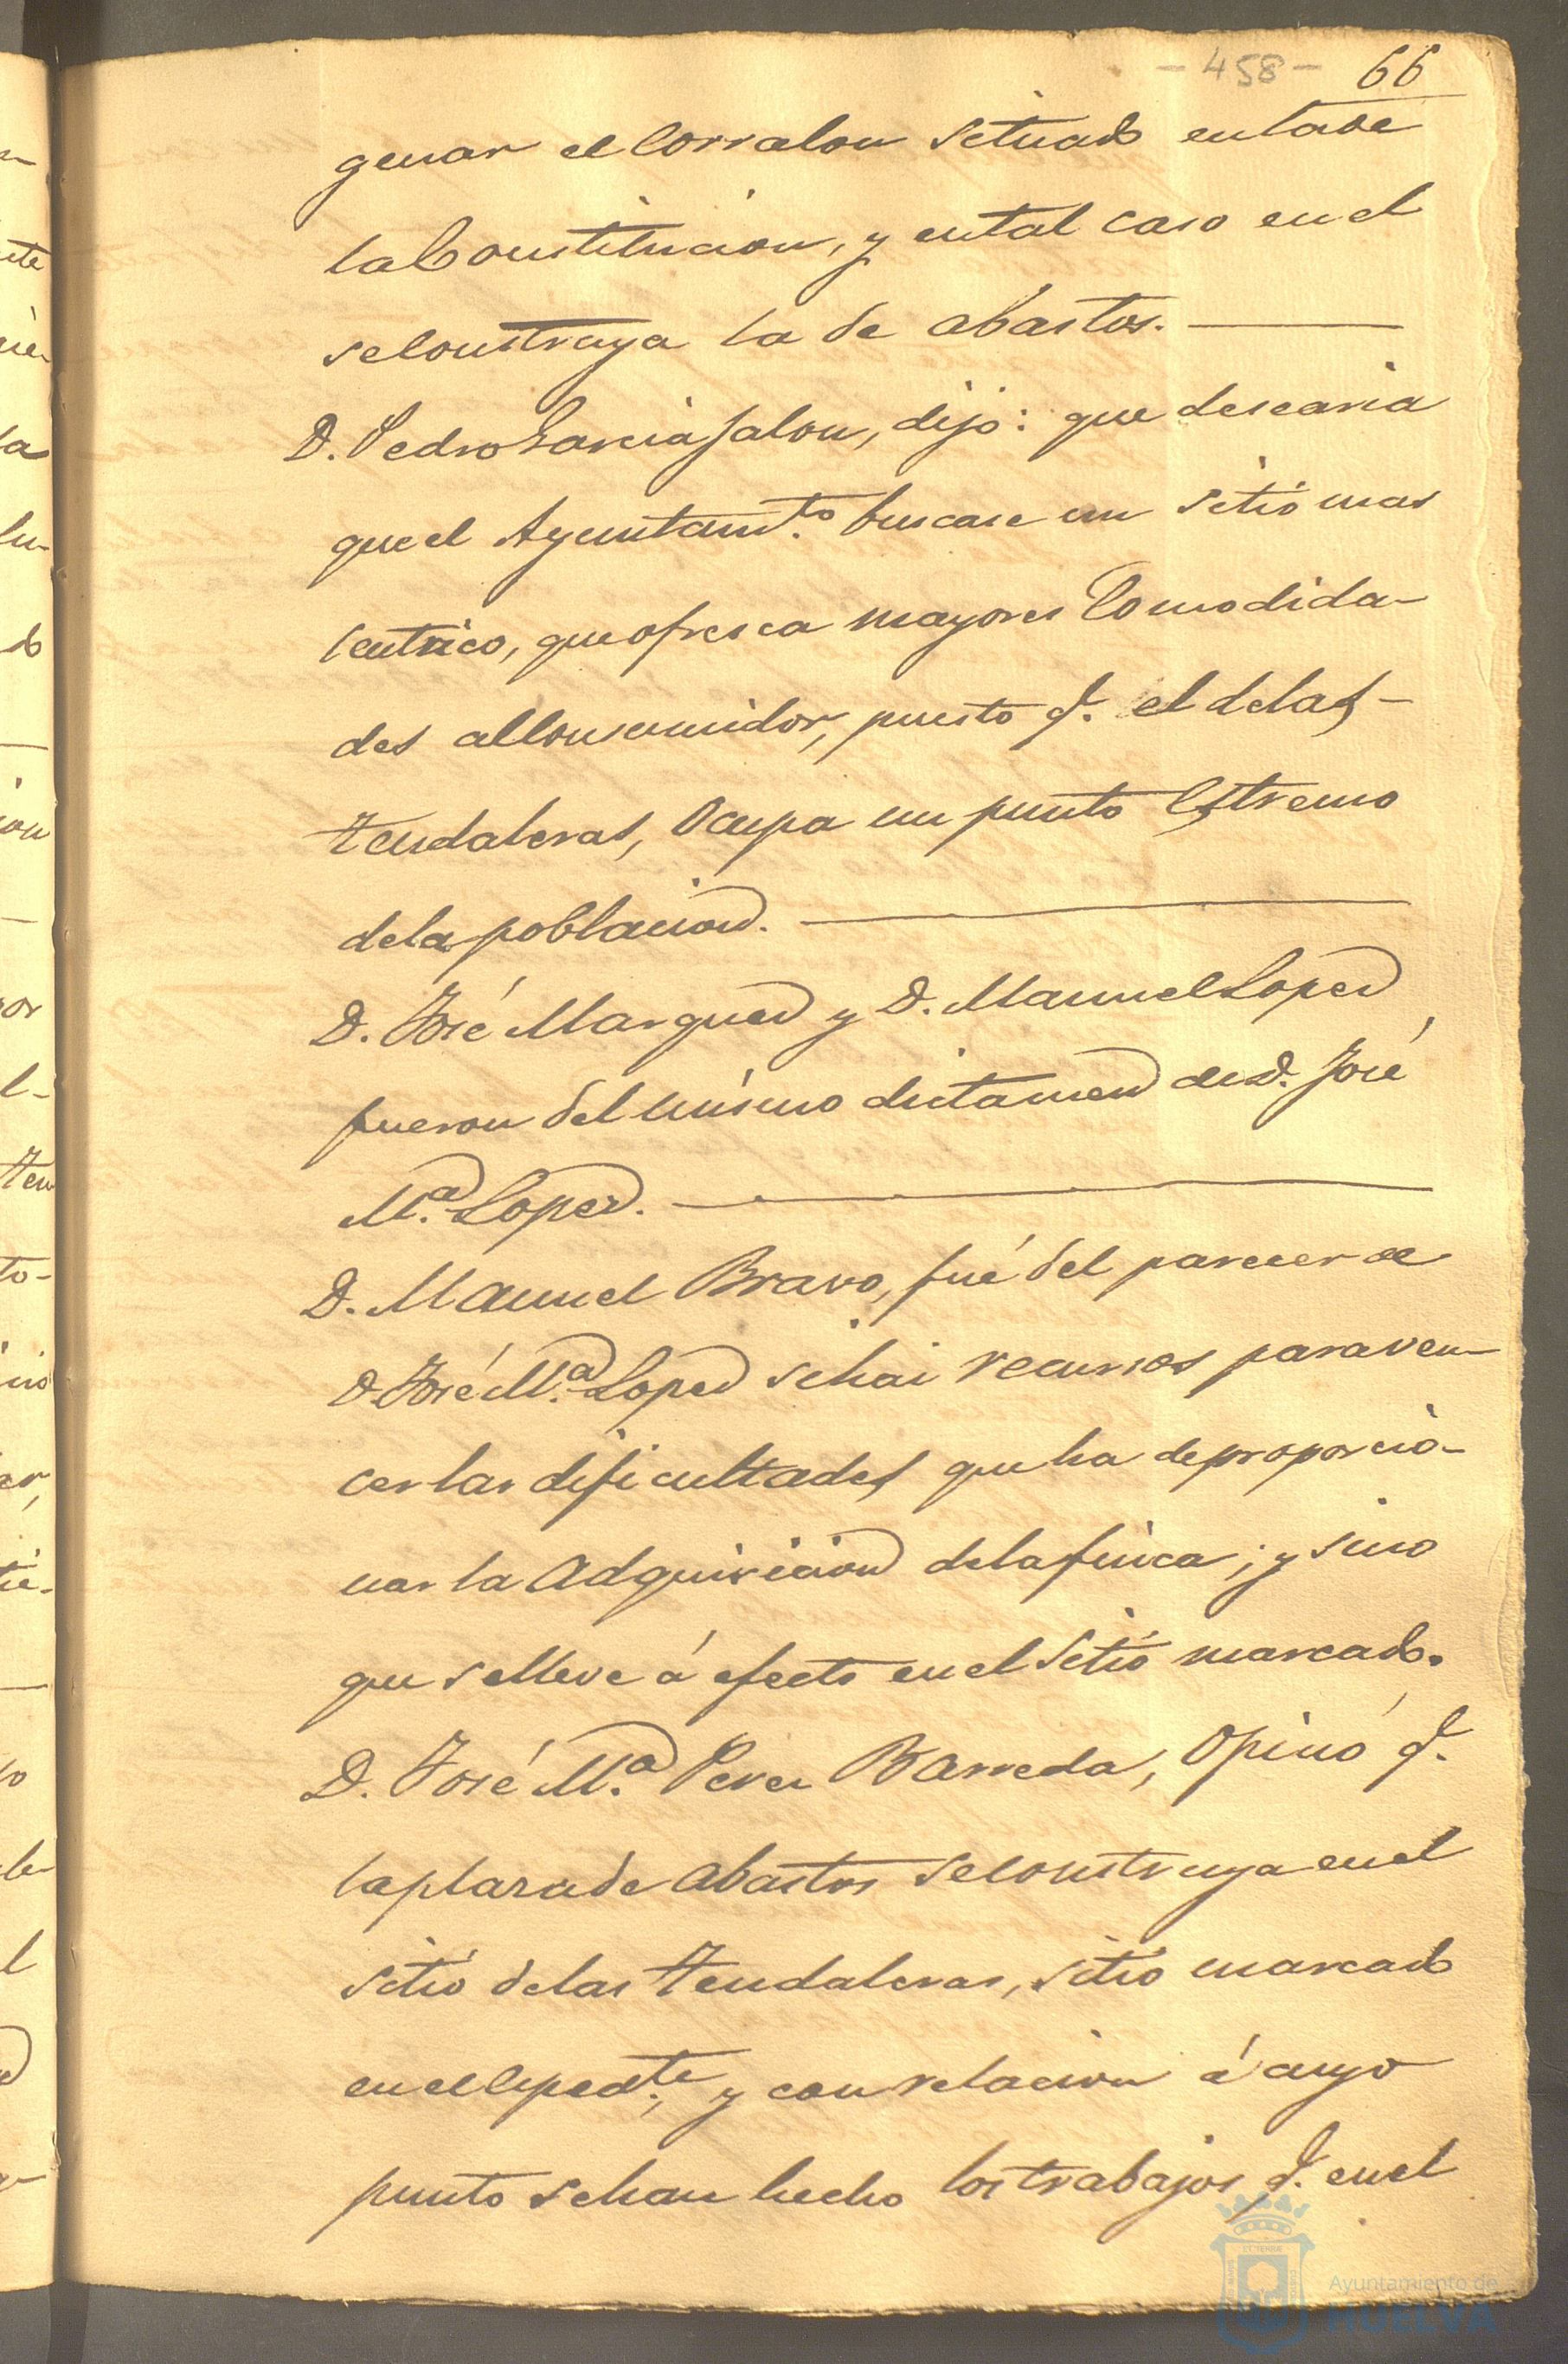 - 458 - 66
genar el Corralon situado en la de
la Constitucion, y en tal caso en el
se construya la de abastos.
D. Pedro Garcia Jalon, dijo: que desearia
que el Ayuntamto. buscase un sitio mas
centrico, que ofresca mayores Comodida-
des al Consumidor, puesto q. el de las
tendaleras, Ocupa un punto Estremo
de la poblacion.
D. José Marquez y D. Manuel Lopez
fueron del mismo dictamen de D. José
Ma. Lopez.
D. Manuel Bravo, fué del parecer de
D. José Ma. Lopez si hai recursos para ven-
cer las dificultades que ha de proporcio-
nar la Adquisicion de la finca; y sino
que se lleve á efecto en el sitio marcado.
D. José Ma. Perez Barreda, Opinó q.
la plaza de Abastos se construya en el
sitio de las tendaleras, sitio marcado
en el Espedte., y con relacion á cuyo
punto se han hecho los trabajos q. en el
Ayuntamiento de
HUELVA